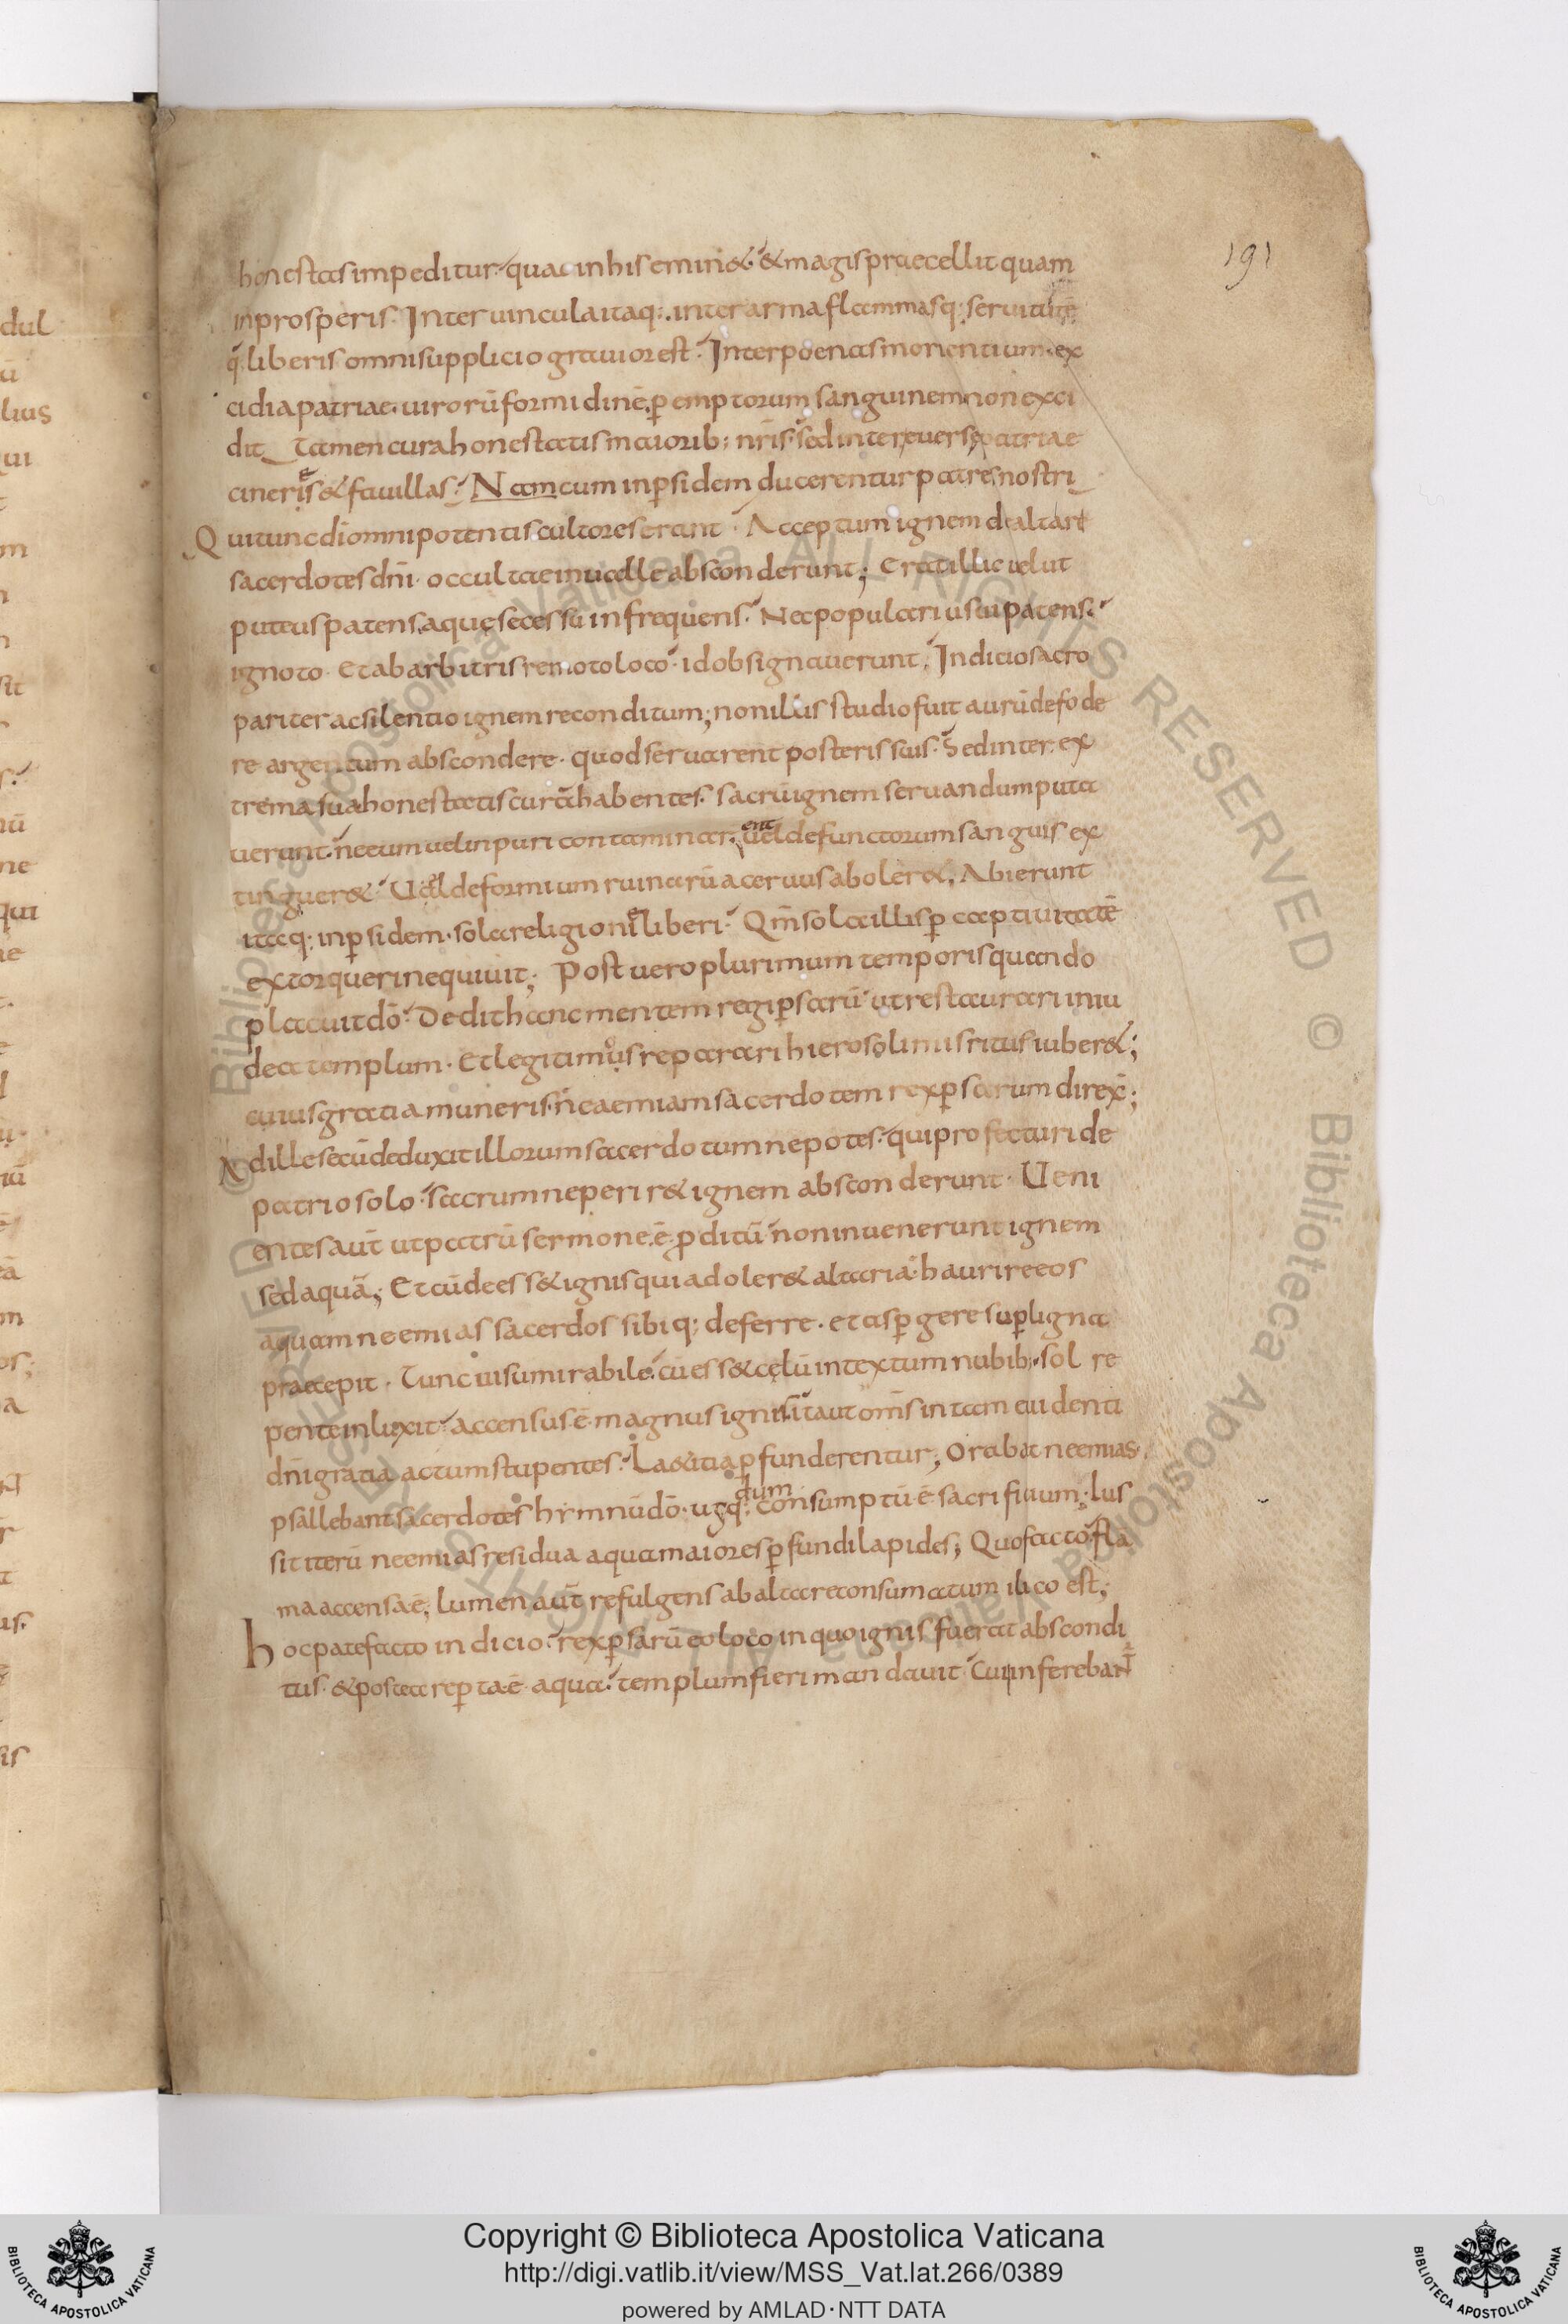 191
honestas impeditur. quae in his emin&. & magis praecellit quam
in prosperis. Inter uincula itaq: inter arma flammasq: seruitutē
q: liberis omni supplicio grauior est. Inter poenas morientium. ex
cidia patriae. uirorū formidinē. pemptorum sanguinem non exci
dit tamen cura honestatis maiorib: nr̄is. sed inter euersę patriae
cineres & fauillas. Nam cum in psidem ducerentur patres nostri
Qui tunc dī omnipotentis cultores erant. Acceptum ignem de altari
sacerdotes dn̄i. occultae in ualle absconderunt; Erat illic uelut
puteus patens. aquę secessu infrequens. Nec populari usui patens.
ignoto. Et ab arbitris remoto loco. id obsignauerunt. Indicio sacro
pariter ac silentio ignem reconditum; non illis studio fuit aurū defode
re argentum abscondere. quod seruarent posteris suis. Sed inter ex
trema sua honestatis curā habentes. sacrū ignem seruandum puta
uerunt. ne eum uel inpuri contaminarent uel defunctorum sanguis ex
tinguer&. Uel deformium ruinarū aceruus aboler&; Abierunt
itaq: in psidem. sola religione liberi. Qm̄ sola illis p captiuitatē
extorqueri nequiuit; Post uero plurimum temporis quando
placuit dō. Dedit hanc mentem regi psarū ut restaurari in iu
dea templum. Et legitimos reparari hierosolimis ritus iuber&;
cuius gratia muneris. neaemiam sacerdotem rex psarum direx̄;
Ad ille secū deduxit illorum sacerdotum nepotes. qui profecturi de
patrio solo. sacrum ne perir& ignem absconderunt. Ueni
entes aūt ut patrū sermone ē pditū non inuenerunt ignem
sed aquā; Et cū dee ss& ignis qui adoler& altaria. haurire eos
aquam neemias sacerdos sibiq; deferre. et aspgere sup ligna
praecepit. Tunc uisu mirabile. cū ess& cęlū intextum nubib; sol re
pente inluxit. accensus ē magnus ignis. ita ut om̄s in tam euidenti
dn̄i gratia actum stupentes. Laetitia pfunderentur; Orabat neemias.
psallebant sacerdotes hymnū dō. usq: dum consumptū ē sacrificium; Ius
sit iterū neemias residua aqua maiores pfundi lapides; Quo facto fla
ma accensa ē; lumen aūt refulgens ab altare consumatum ilico est;
hoc patefacto indicio. rex psarū eo loco in quo ignis fuerat abscondi
tus. & postea repta ē aqua. templum fieri mandauit. Cui inferebant̄
dul
ū
lius
qui
Copyright © Biblioteca Apostolica Vaticana
http://digi.vatlib.it/view/MSS_Vat.lat.266/0389
powered by AMLAD·NTT DATA
BIBLIOTECA APOSTOLICA VATICANA
BIBLIOTECA APOSTOLICA VATICANA